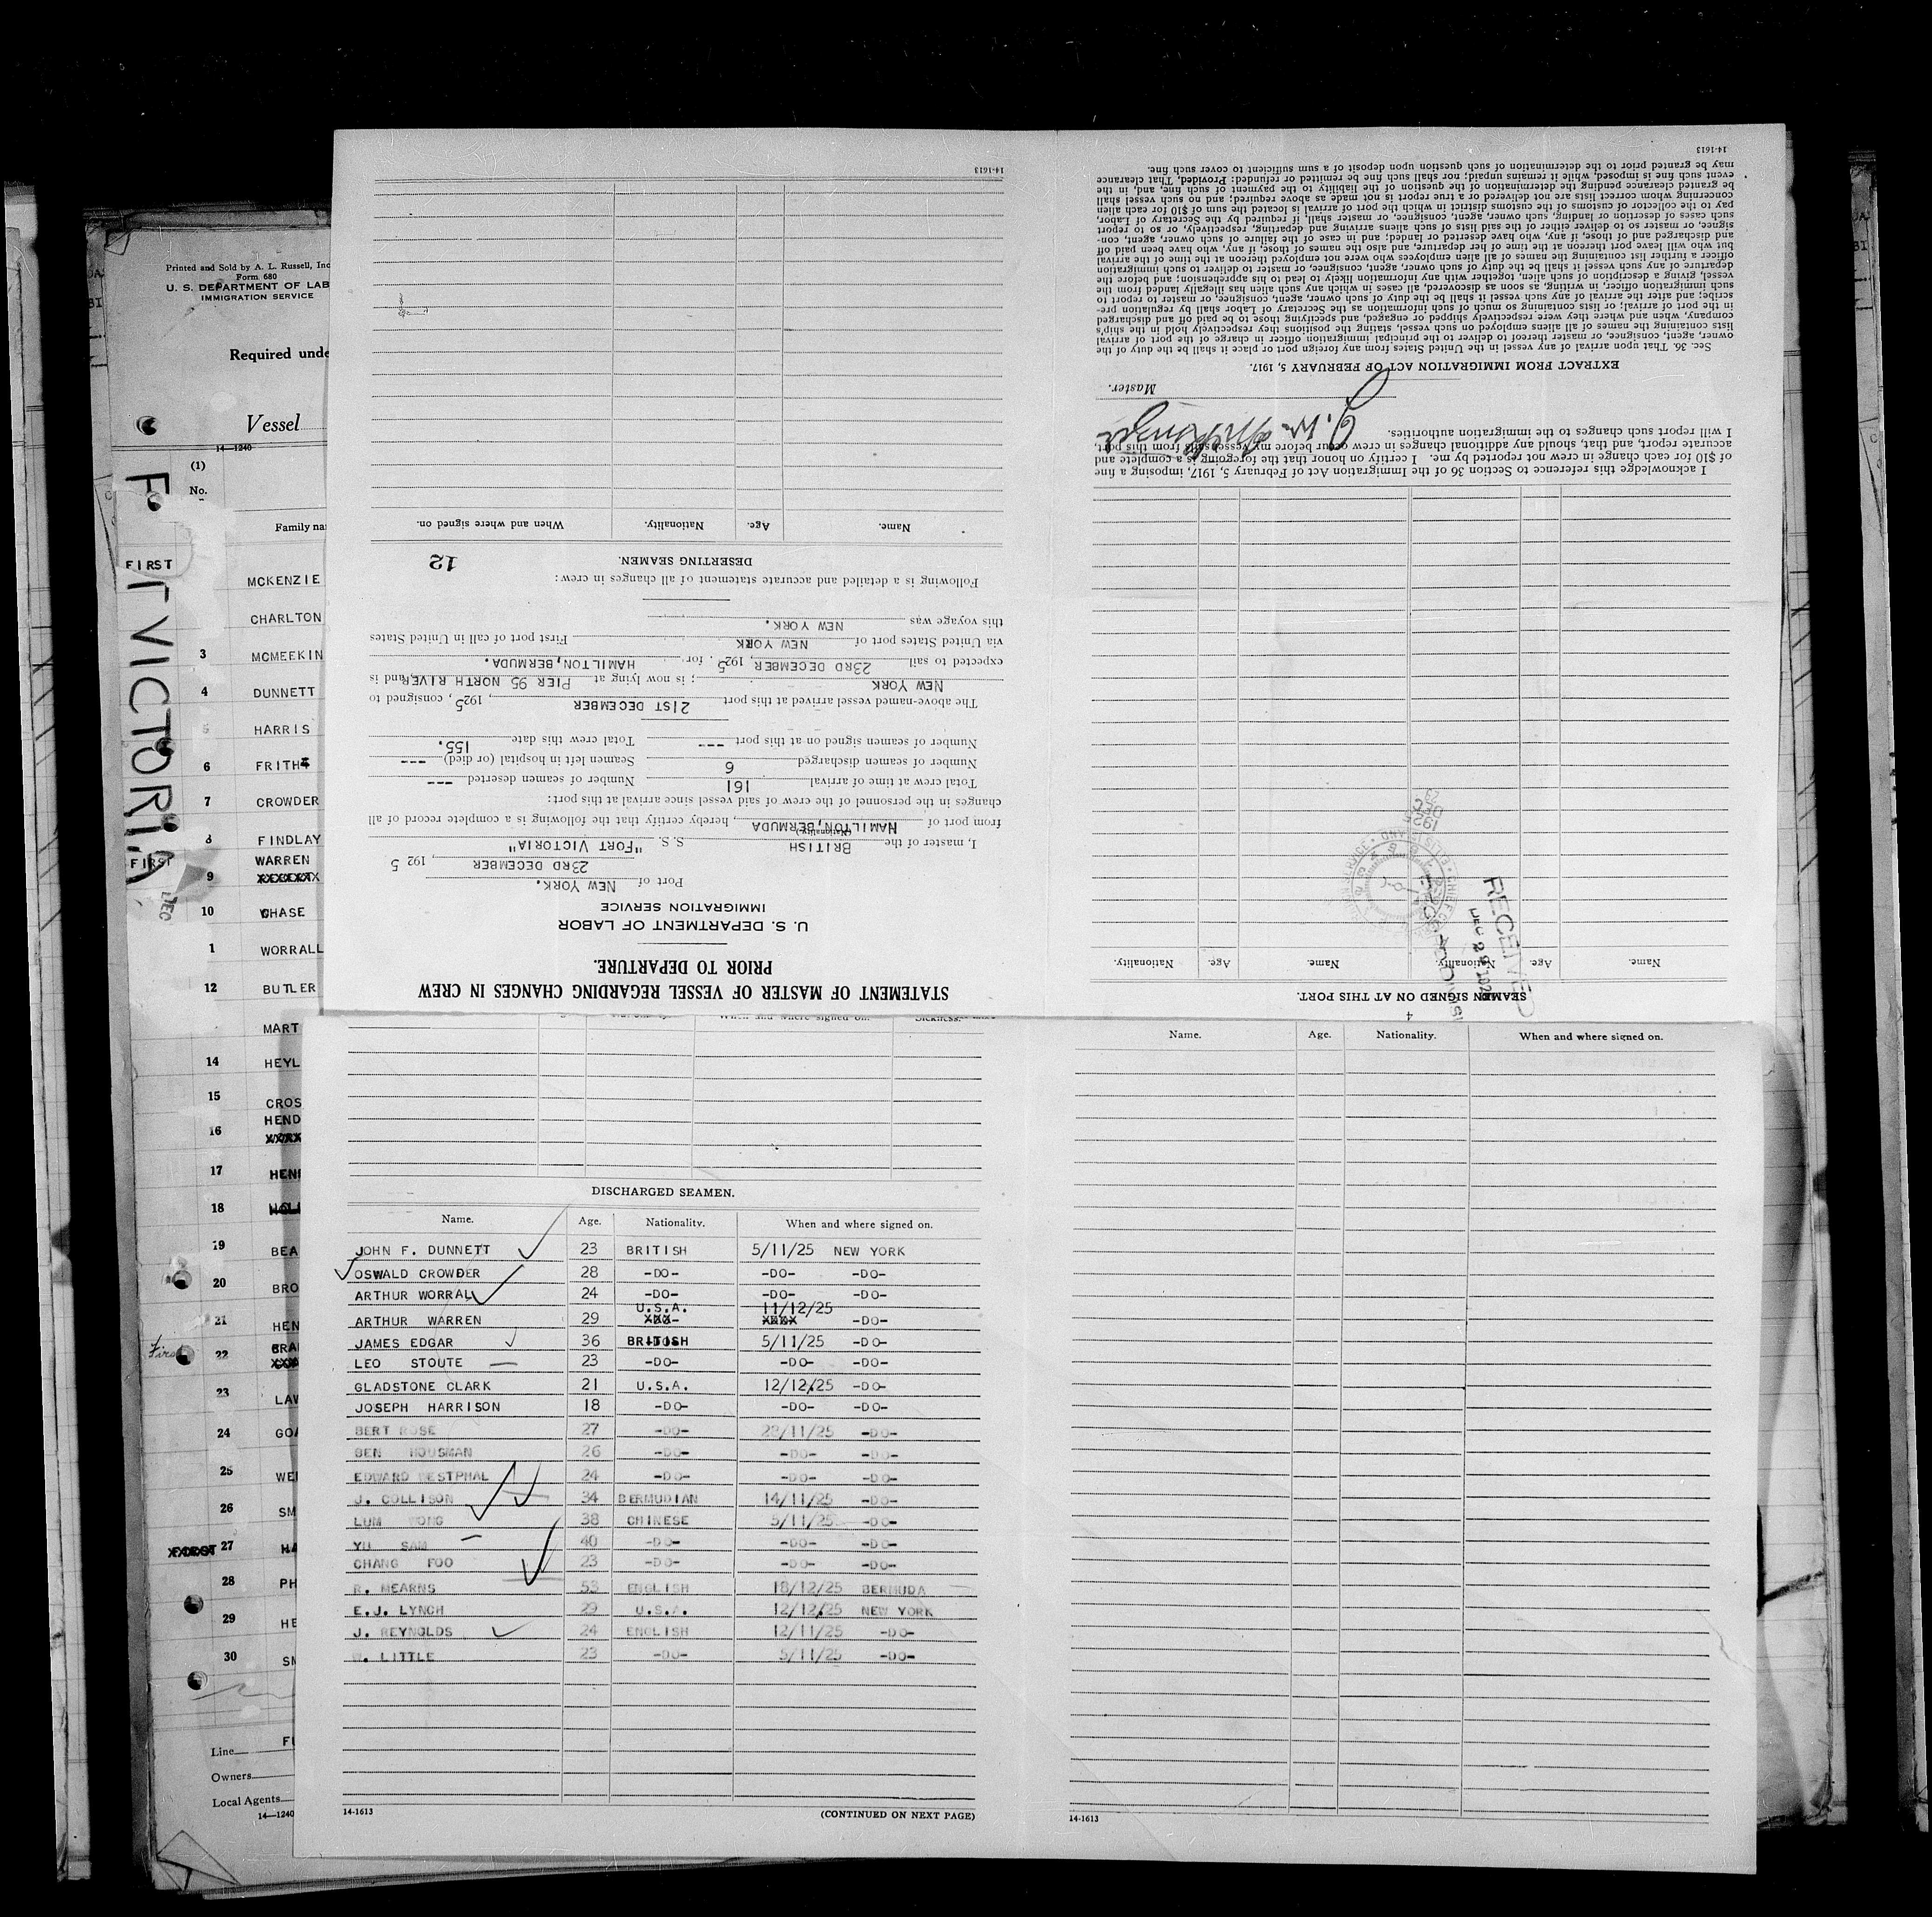 Printed and Sold by A. L. Russell, Inc
Form 680
U. S. DEPARTMENT OF LAB
IMMIGRATION SERVICE
Required unde
Vessel
14—1240
(1)
No.
Family na
FIRST
FORT VICTORIA
MCKENZIE
CHARLTON
3 MCMEEKIN
4 DUNNETT
5 HARRIS
6 FRITH
7 CROWDER
8 FINDLAY
FIRST WARREN
9
10 CHASE
1 WORRALL
12 BUTLER
MART
14 HEYL
15 CROS
HEND
16
17 HEN
18
19 BEA
20 BRO
21 HEN
First 22 BRA
23 LAW
24 GOA
25 WE
26 SM
27 HA
28 PH
29 HE
30 SM
Line
Owners
Local Agents
14—1240
STATEMENT OF MASTER OF VESSEL REGARDING CHANGES IN CREW
PRIOR TO DEPARTURE.
U. S. DEPARTMENT OF LABOR
IMMIGRATION SERVICE
Port of NEW YORK.
23RD DECEMBER, 192 5
I, master of the BRITISH S.S. "FORT VICTORIA"
(Nationality)
from port of HAMILTON, BERMUDA, hereby certify that the following is a complete record of all
changes in the personnel of the crew of said vessel since arrival at this port:
Total crew at time of arrival 161 Number of seamen deserted ---
Number of seamen discharged 6 Seamen left in hospital (or died) ---
Number of seamen signed on at this port --- Total crew this date 155.
The above-named vessel arrived at this port 21ST DECEMBER, 1925, consigned to
NEW YORK; is now lying at PIER 95 NORTH RIVER, and is
expected to sail 23RD DECEMBER, 1925, for HAMILTON, BERMUDA.
via United States port of NEW YORK First port of call in United States
this voyage was NEW YORK.
Following is a detailed and accurate statement of all changes in crew:
12
DESERTING SEAMEN.
Name. Age. Nationality. When and where signed on.
14-1613
4
SEAMEN SIGNED ON AT THIS PORT.
Name. Age. Nationality. Name. Age. Nationality.
RECEIVED
DEC
1925
DEC
23
I acknowledge this reference to Section 36 of the Immigration Act of February 5, 1917, imposing a fine
of $10 for each change in crew not reported by me. I certify on honor that the foregoing is a complete and
accurate report, and that, should any additional changes in crew occur before my vessel sails from this port,
I will report such changes to the immigration authorities.
Master.
EXTRACT FROM IMMIGRATION ACT OF FEBRUARY 5, 1917.
Sec. 36. That upon arrival of any vessel in the United States from any foreign port or place it shall be the duty of the
owner, agent, consignee, or master thereof to deliver to the principal immigration officer in charge of the port of arrival
lists containing the names of all aliens employed on such vessel, stating the positions they respectively hold in the ship's
company, when and where they were respectively shipped or engaged, and specifying those to be paid off and discharged
in the port of arrival; or lists containing so much of such information as the Secretary of Labor shall by regulation pre-
scribe; and after the arrival of any such vessel it shall be the duty of such owner, agent, consignee, or master to report to
such immigration officer, in writing, as soon as discovered, all cases in which any such alien has illegally landed from the
vessel, giving a description of such alien, together with any information likely to lead to his apprehension; and before the
departure of any such vessel it shall be the duty of such owner, agent, consignee, or master to deliver to such immigration
officer a further list containing the names of all alien employees who were not employed thereon at the time of the arrival
but who will leave port thereon at the time of her departure, and also the names of those, if any, who have been paid off
and discharged and of those, if any, who have deserted or landed; and in case of the failure of such owner, agent, con-
signee, or master so to deliver either of the said lists of such aliens arriving and departing, respectively, or so to report
such cases of desertion or landing, such owner, agent, consignee, or master shall, if required by the Secretary of Labor,
pay to the collector of customs of the customs district in which the port of arrival is located the sum of $10 for each alien
concerning whom correct lists are not delivered or a true report is not made as above required; and no such vessel shall
be granted clearance pending the determination of the question of the liability to the payment of such fine, and, in the
event such fine is imposed, while it remains unpaid; nor shall such fine be remitted or refunded: Provided, That clearance
may be granted prior to the determination of such question upon deposit of a sum sufficient to cover such fine.
14-1613
When and where signed on. Sickness.
DISCHARGED SEAMEN.
Name. Age. Nationality. When and where signed on.
JOHN F. DUNNETT 23 BRITISH 5/11/25 NEW YORK
OSWALD CROWDER 28 -DO- -DO- -DO-
ARTHUR WORRAL 24 -DO- -DO- -DO-
U.S.A. 11/12/25
ARTHUR WARREN 29 -DO-
JAMES EDGAR 36 BRITISH 5/11/25 -DO-
LEO STOUTE 23 -DO- -DO- -DO-
GLADSTONE CLARK 21 U.S.A. 12/12/25 -DO-
JOSEPH HARRISON 18 -DO- -DO- -DO-
BERT ROSE 27 -DO- 28/11/25 -DO-
BEN HOUSMAN 26 -DO- -DO- -DO-
EDWARD WESTPHAL 24 -DO- -DO- -DO-
J. COLLISON 34 BERMUDIAN 14/11/25 -DO-
LUM WONG 38 CHINESE 5/11/25 -DO-
YU SAM 40 -DO- -DO- -DO-
CHANG FOO 23 -DO- -DO- -DO-
R. MEARNS 53 ENGLISH 18/12/25 BERMUDA
E.J. LYNCH 29 U.S.A. 12/12/25 NEW YORK
J. REYNOLDS 24 ENGLISH 12/11/25 -DO-
W. LITTLE 23 -DO- 5/11/25 -DO-
14-1613 (CONTINUED ON NEXT PAGE)
Name. Age. Nationality. When and where signed on.
14-1613